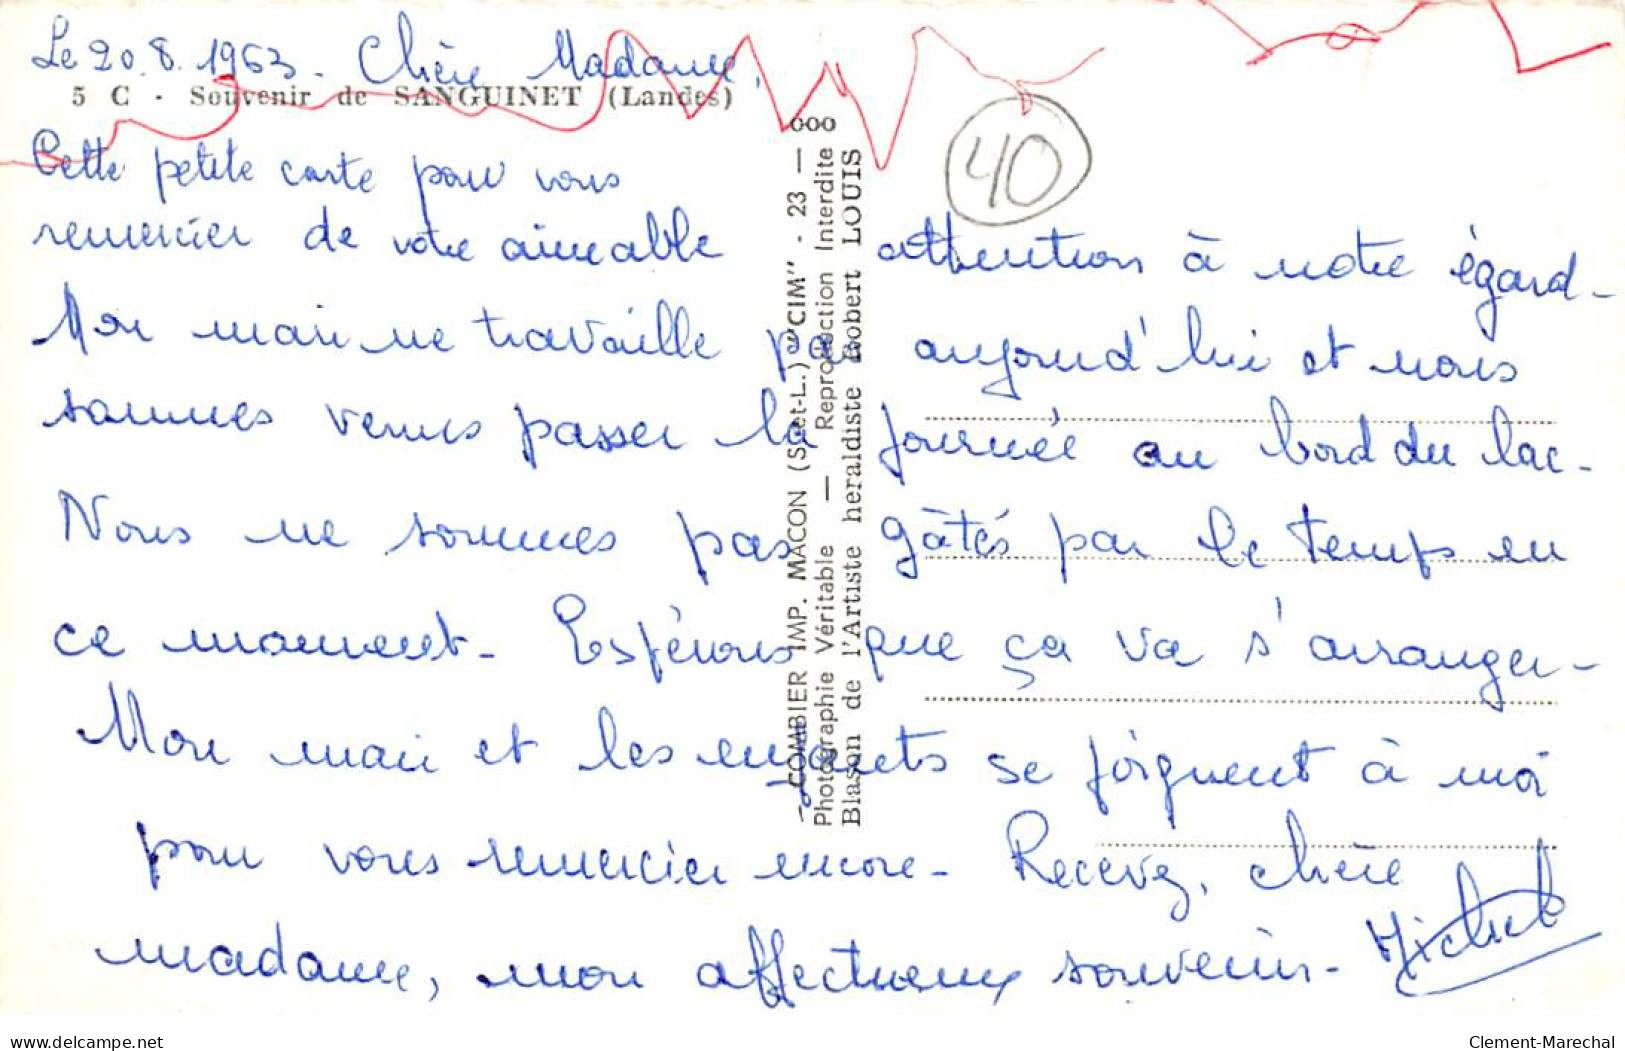 Le 20.8.1963. Chère Madame,
5 C - Souvenir de SANGUINET (Landes)
Cette petite carte pour vous
remercier de votre aimable attention à notre égard -
Mon mari ne travaille pas aujourd'hui et nous
sommes venus passer la journée au bord du lac -
Nous ne sommes pas gâtés par le temps en
ce moment - Espérons que ça va s'arranger -
Mon mari et les enfants se joignent à moi
pour vous remercier encore - Recevez, chère
madame, mon affectueux souvenir -
40
— COMBIER IMP. MACON (S.-et-L.) "CIM" - 23 — ooo
Photographie Véritable — Reproduction Interdite
Blason de l'Artiste heraldiste Robert LOUIS
www.delcampe.net
Clement-Marechal